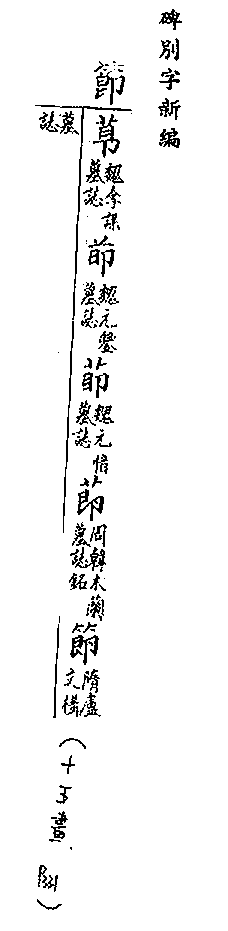 碑別字新編
節
莭 魏李謀墓誌
莭 魏元鑒墓誌
莭 魏元悟墓誌
莭 周韓木蘭墓誌銘
節 隋盧文構
墓誌
(十五畫, P331)